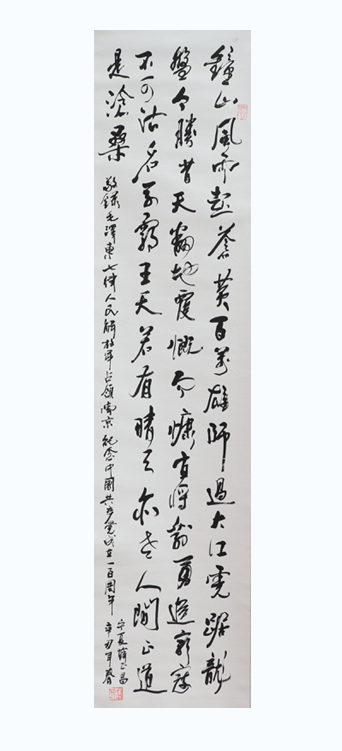 鐘山風雨起蒼黃百萬雄師過大江虎踞龍
盤今勝昔天翻地覆慨而慷宜將剩勇追窮寇
不可沽名學霸王天若有晴天亦老人間正道
是滄桑
敬錄毛澤東七律人民解放軍占領南京 紀念中國共产黨成立一百周年
宁夏
辛丑年春